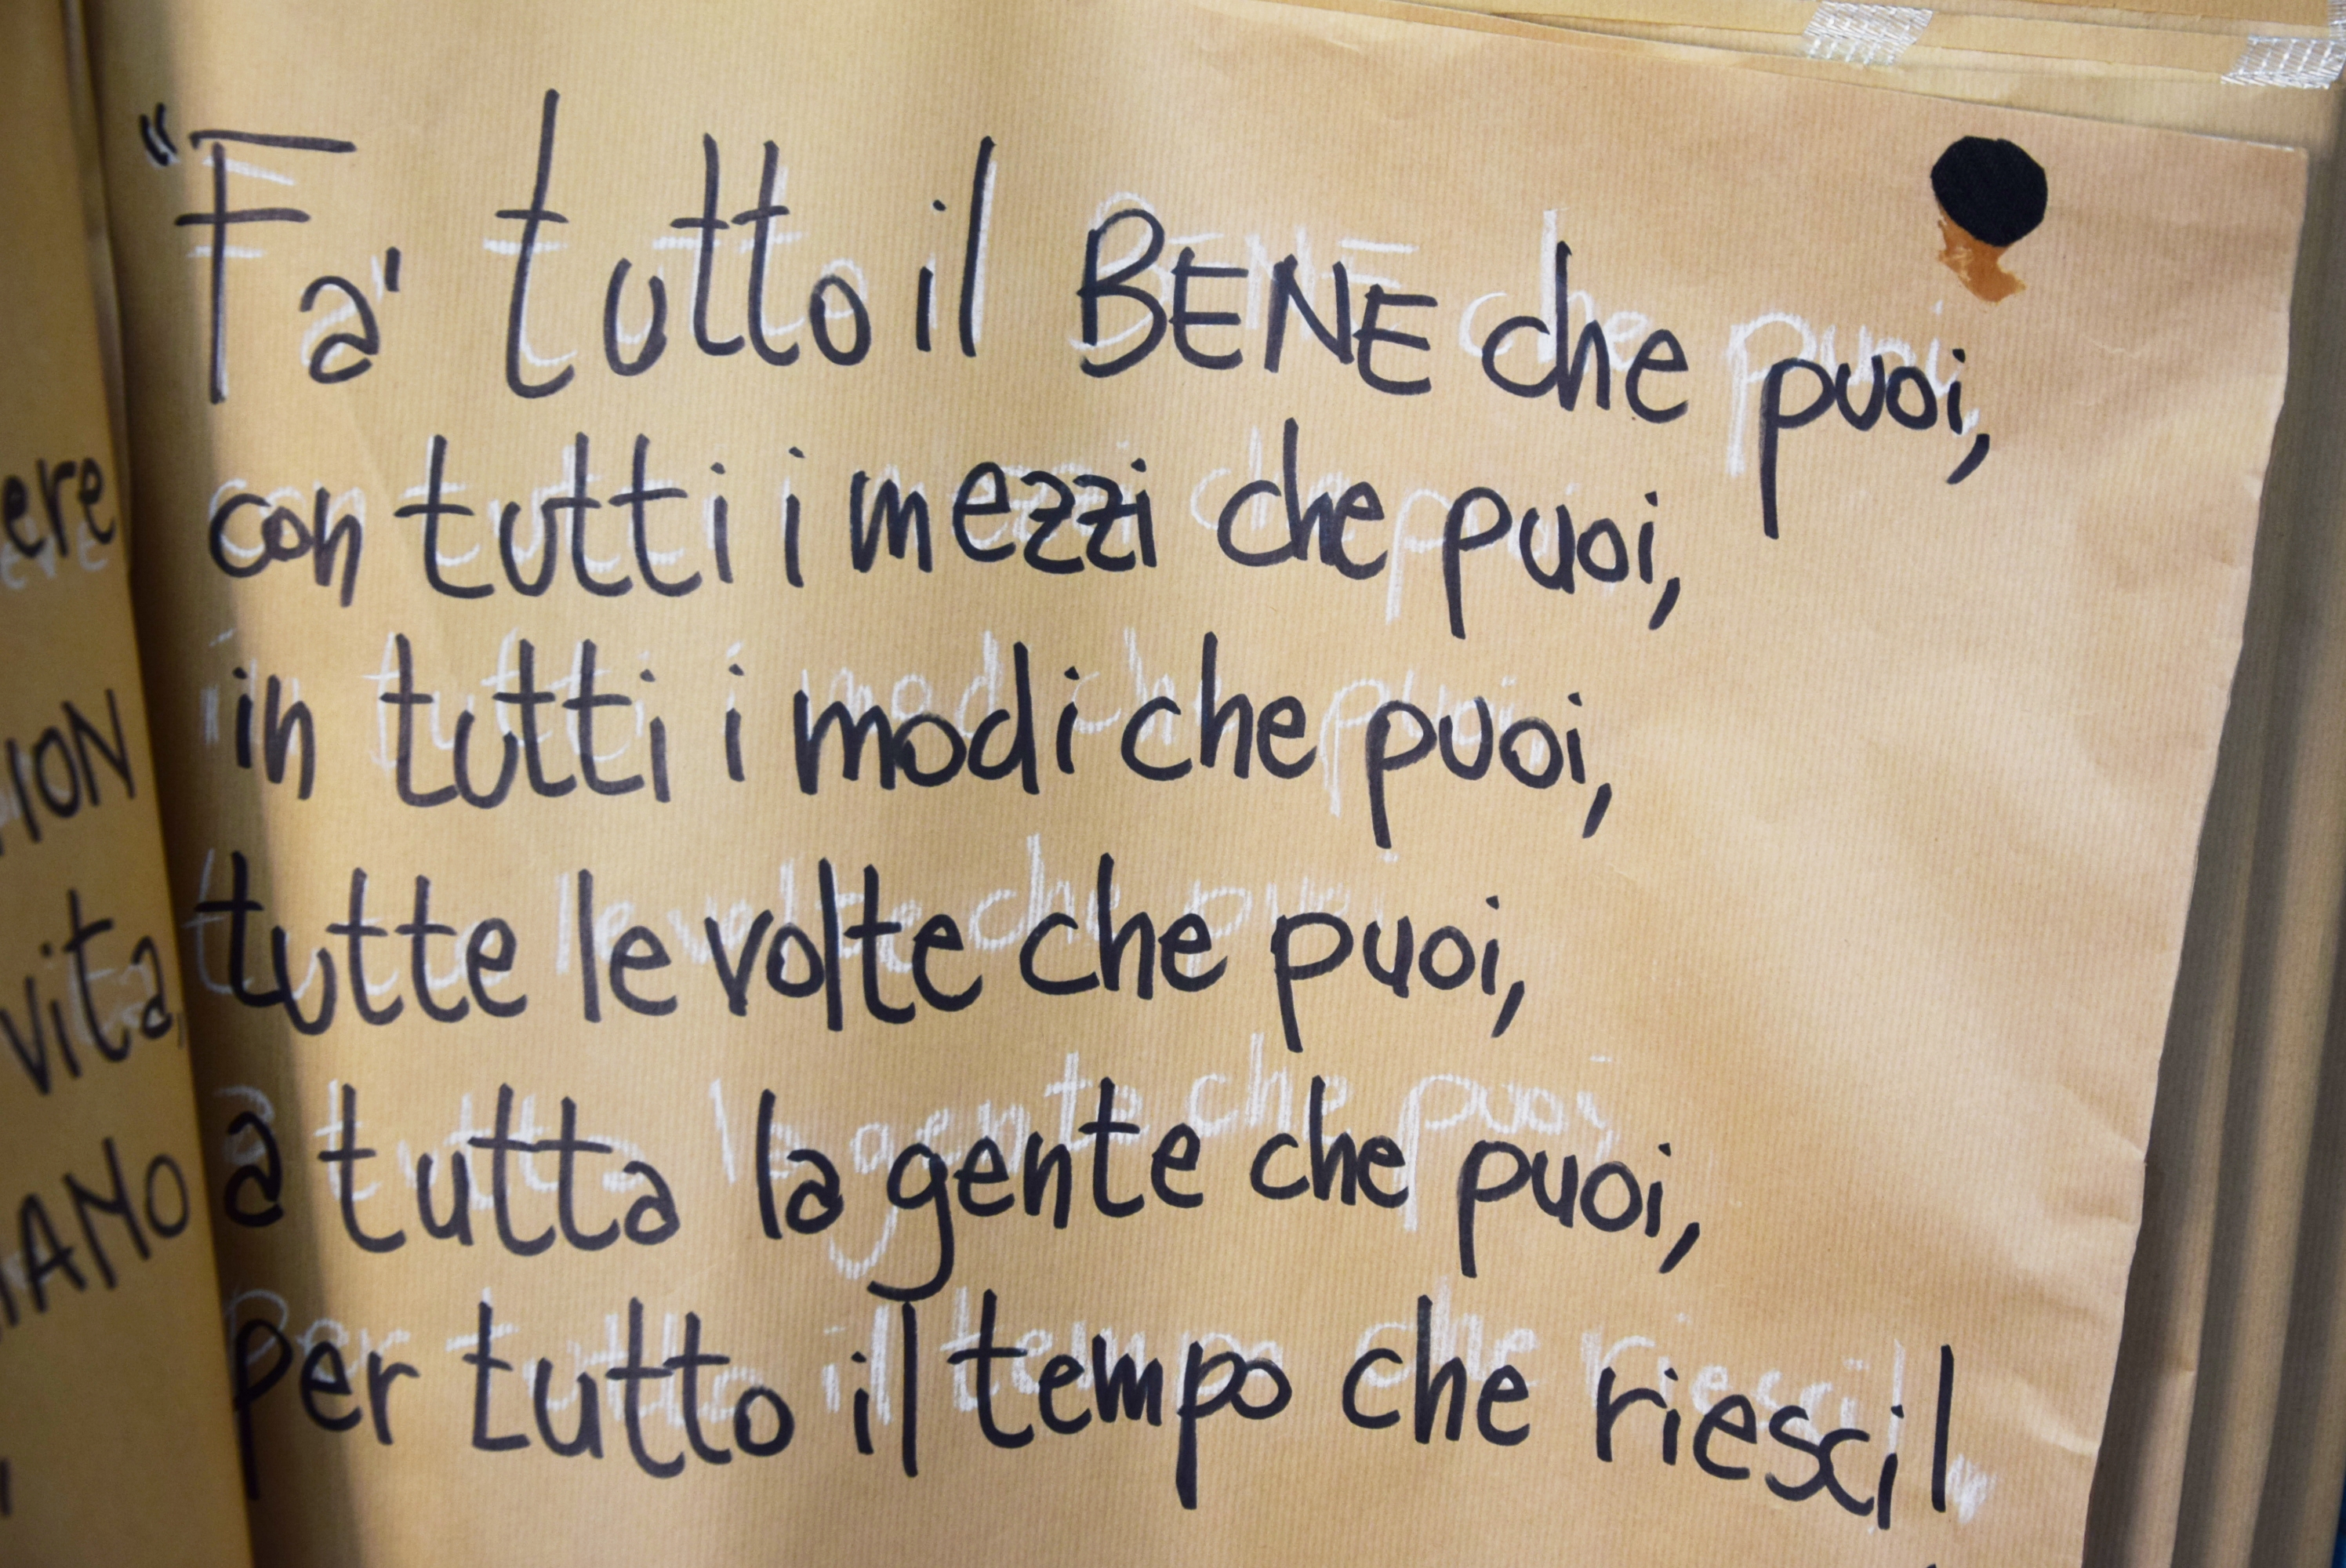 ere
ION
vita,
IANO
"Fa' tutto il BENE che puoi,
con tutti i mezzi che puoi,
in tutti i modi che puoi,
tutte le volte che puoi,
a tutta la gente che puoi,
per tutto il tempo che riesci!